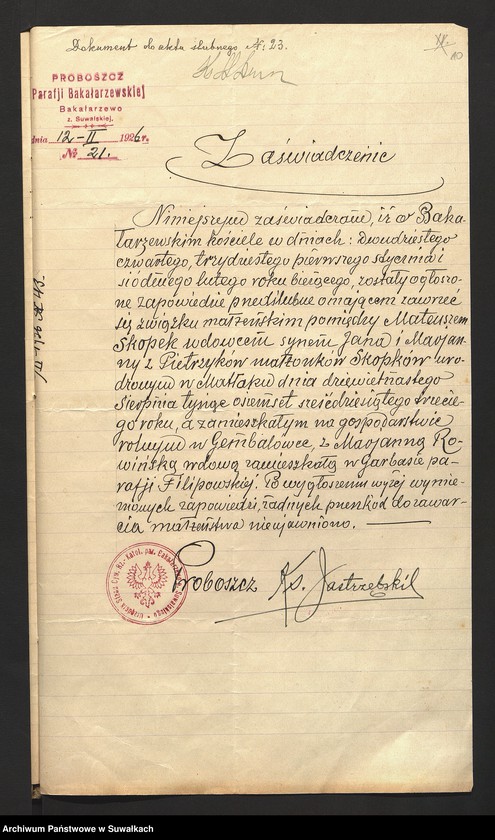 Dokument do aktu ślubnego № 23.
10
PROBOSZCZ
Parafji Bakałarzewskiej
Bakałarzewo
z. Suwalskiej,
dnia 12-II 1926 r.
№ 21.
Zaświadczenie
Niniejszem zaświadczam, iż w Baka-
łarzewskim kościele w dniach: dwudziestego
czwartego, trzydziestego pierwszego stycznia i
siódmego lutego roku bieżącego, zostały ogłoszo-
ne zapowiedzie przedślubne o mającem zawrzeć
się związku małżeńskim pomiędzy Mateuszem
Skopek wdowcem synem Jana i Marjan-
ny z Pietrzyków małżonków Skopków uro-
dzonym w Matłaku dnia dziewiętnastego
Sierpnia tysiąc osiemset sześćdziesiątego trzecie-
go roku, a zamieszkałym na gospodarstwie
rolnym w Gembalowce, z Marjanną Ro-
wińską wdową zamieszkałą w Garbasie pa-
rafji Filipowskiej. Po wygłoszeniu wyżej wymie-
nionych zapowiedzi, żadnych przeszkód do zawar-
cia małżeństwa nie ujawniono.
Proboszcz Ks. Jastrzębski
Archiwum Państwowe w Suwałkach